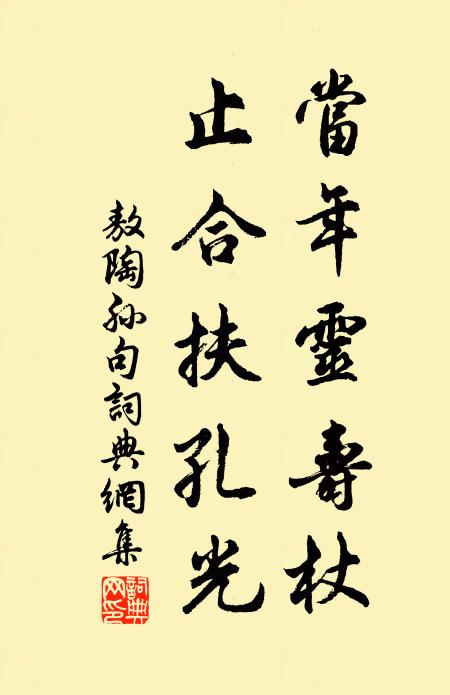 當年靈壽杖
止合扶孔光
敖陶孫句詞典網集
詞典網印